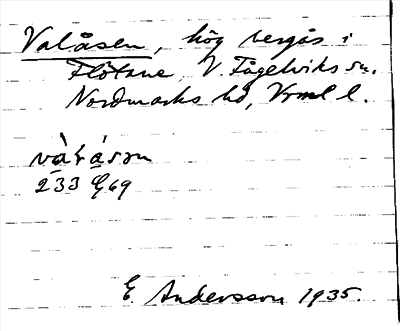 Valåsen, hög bergås i
Flötane, V. Fågelviks sn,
Nordmarks hd, Vrml l.
vàlåsən
233 G69
E. Andersson 1935.